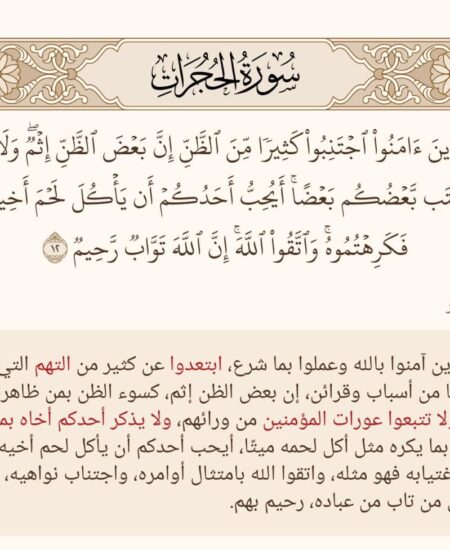 سُورَةُ الحُجُرَاتِ
ءَامَنُوا۟ ٱجْتَنِبُوا۟ كَثِيرًا مِّنَ ٱلظَّنِّ إِنَّ بَعْضَ ٱلظَّنِّ إِثْمٌ ۖ وَلَا
بَّعْضُكُم بَعْضًا ۚ أَيُحِبُّ أَحَدُكُمْ أَن يَأْكُلَ لَحْمَ
فَكَرِهْتُمُوهُ ۚ وَٱتَّقُوا۟ ٱللَّهَ ۚ إِنَّ ٱللَّهَ تَوَّابٌ رَّحِيمٌ ١٢
آمنوا بالله وعملوا بما شرع، ابتعدوا عن كثير من التهم التي
من أسباب وقرائن، إن بعض الظن إثم، كسوء الظن بمن ظاهر
لا تتبعوا عورات المؤمنين من ورائهم، ولا يذكر أحدكم أخاه بم
بما يكره مثل أكل لحمه ميتًا، أيحب أحدكم أن يأكل لحم أخيه
غتيابه فهو مثله، واتقوا الله بامتثال أوامره، واجتناب نواهيه،
من تاب من عباده، رحيم بهم.